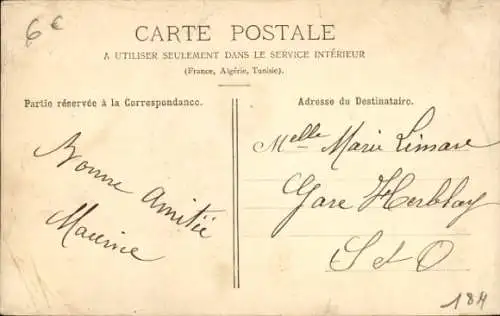 6€
CARTE POSTALE
A UTILISER SEULEMENT DANS LE SERVICE INTÉRIEUR
(France, Algérie, Tunisie).
Partie réservée à la Correspondance.
Bonne Amitié
Maurice
Adresse du Destinataire.
Melle Marie Limare
Gare Herblay
S et O
184